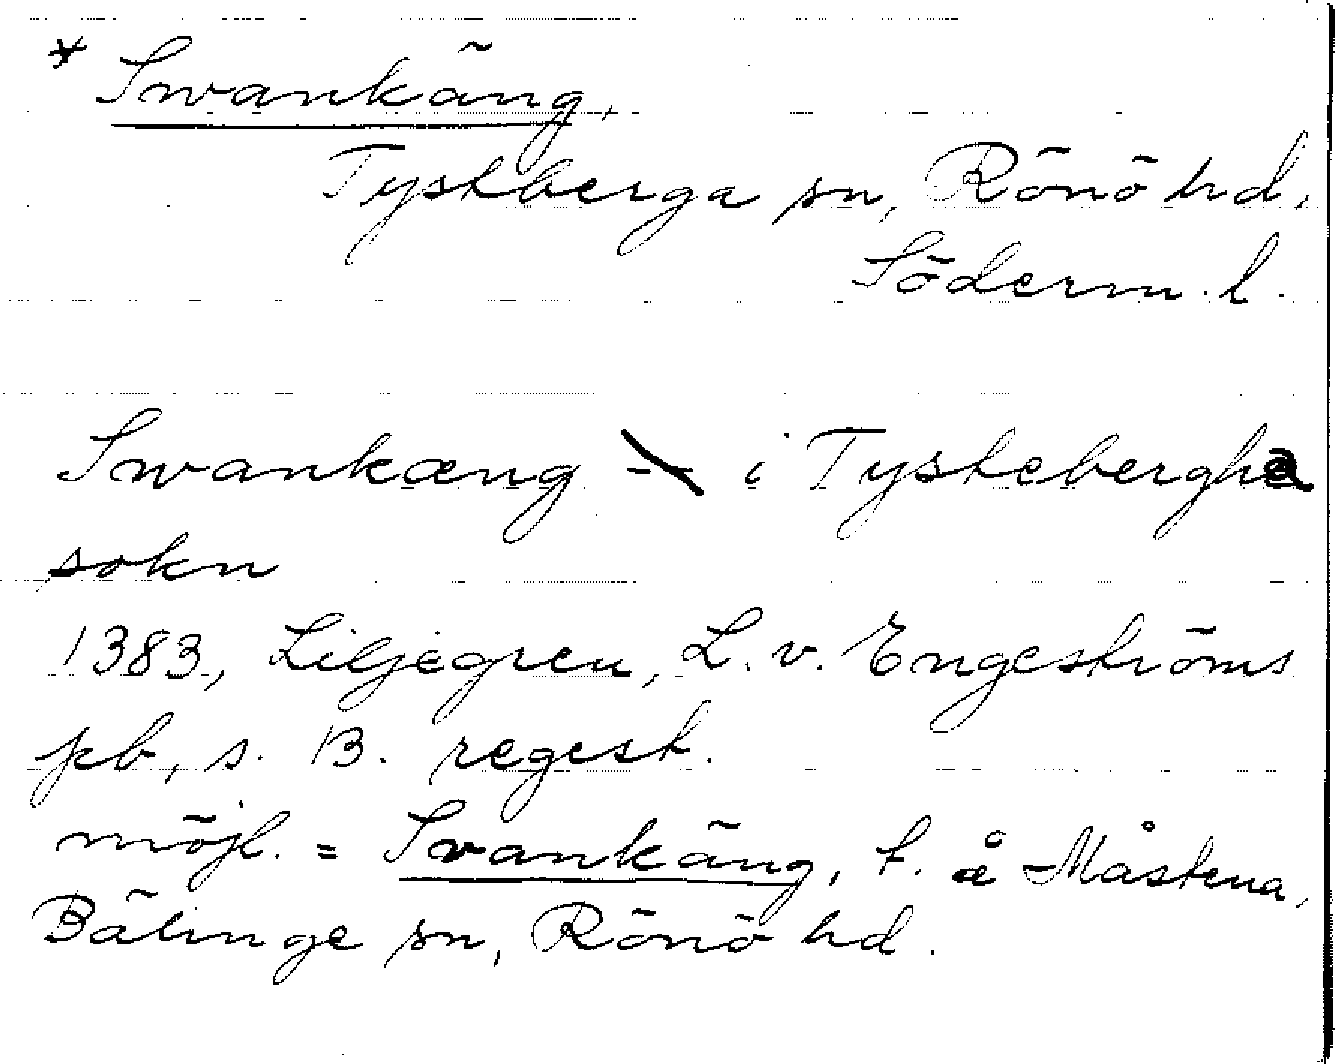 * Swankäng,
Tystberga sn, Rönö hd,
Söderm. l.
Swankæng -- i Tystebergha
sokn
1383, Liljegren, L. v. Engeströms
pb, s. 13. regest.
möjl. = Svankäng, t. å Måstena,
Bälinge sn, Rönö hd.